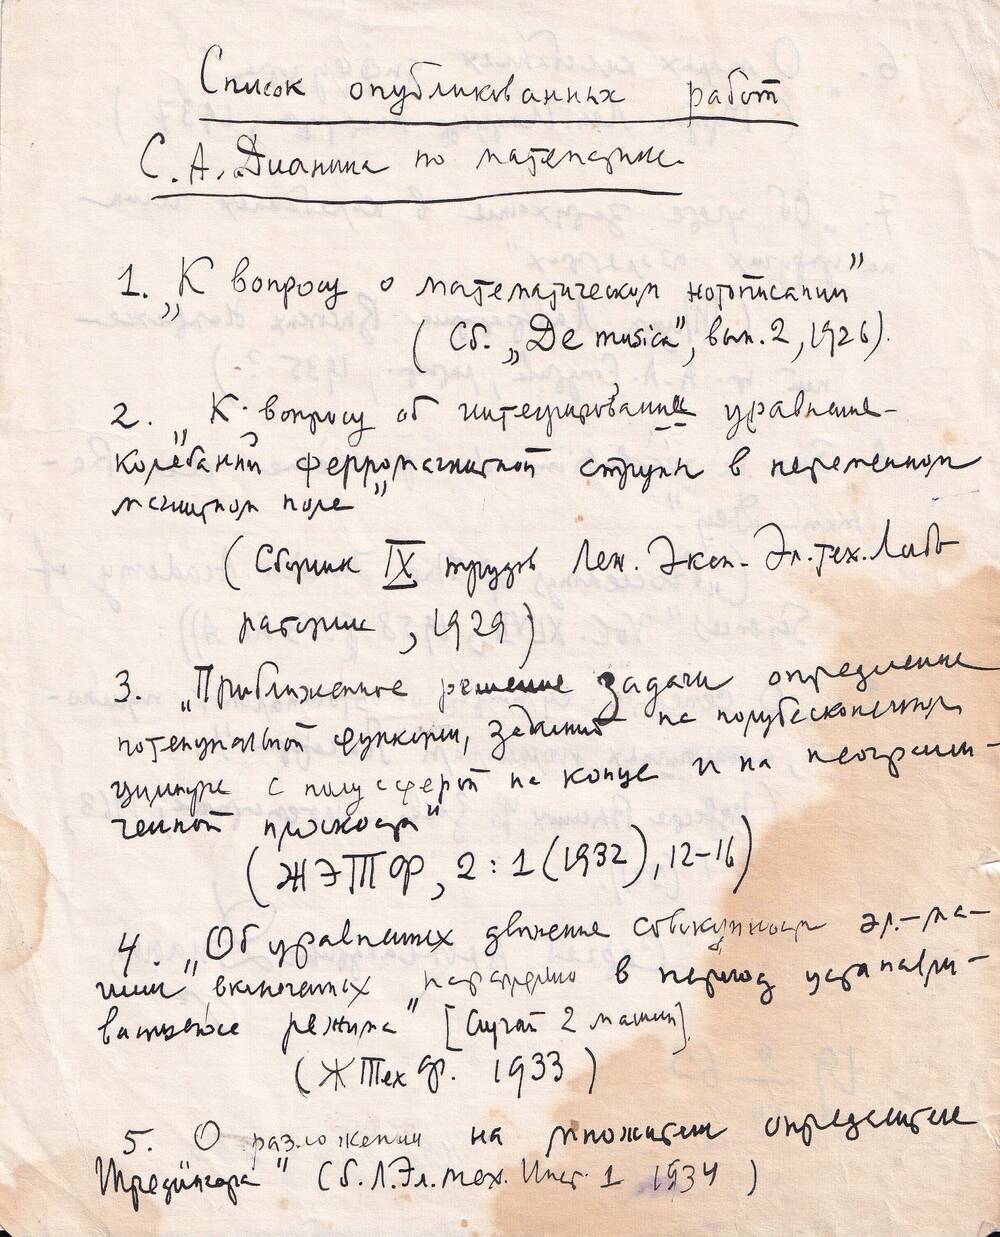 Список опубликованных работ
С. А. Дианина по математике.
1. „К вопросу о математическом нотописании"
(Сб. „De musica", вып. 2, 1926).
2. „К вопросу об интегрировании уравнение-
колебаний ферромагнитной струны в переменном
магнитном поле"
(Сборник IX трудов Лен. Эксп. Эл. тех. Лабо-
ратории, 1929)
3. „Приближенное решение задачи определение
потенциальной функции, заданной на полубесконечном
цилиндре с полусферой на конце и на неограни-
ченной плоскости"
(ЖЭТФ, 2 : 1 (1932), 12-16)
4. „Об уравнениях движение совокупности эл.-ма-
шин, включенных параллельно в период устанавли-
режима" [Случай 2 машин]
(ЖТех Ф. 1933)
5. О разложении на множители определителе
" (Сб. Л. Эл. тех. Инст. 1 1934)